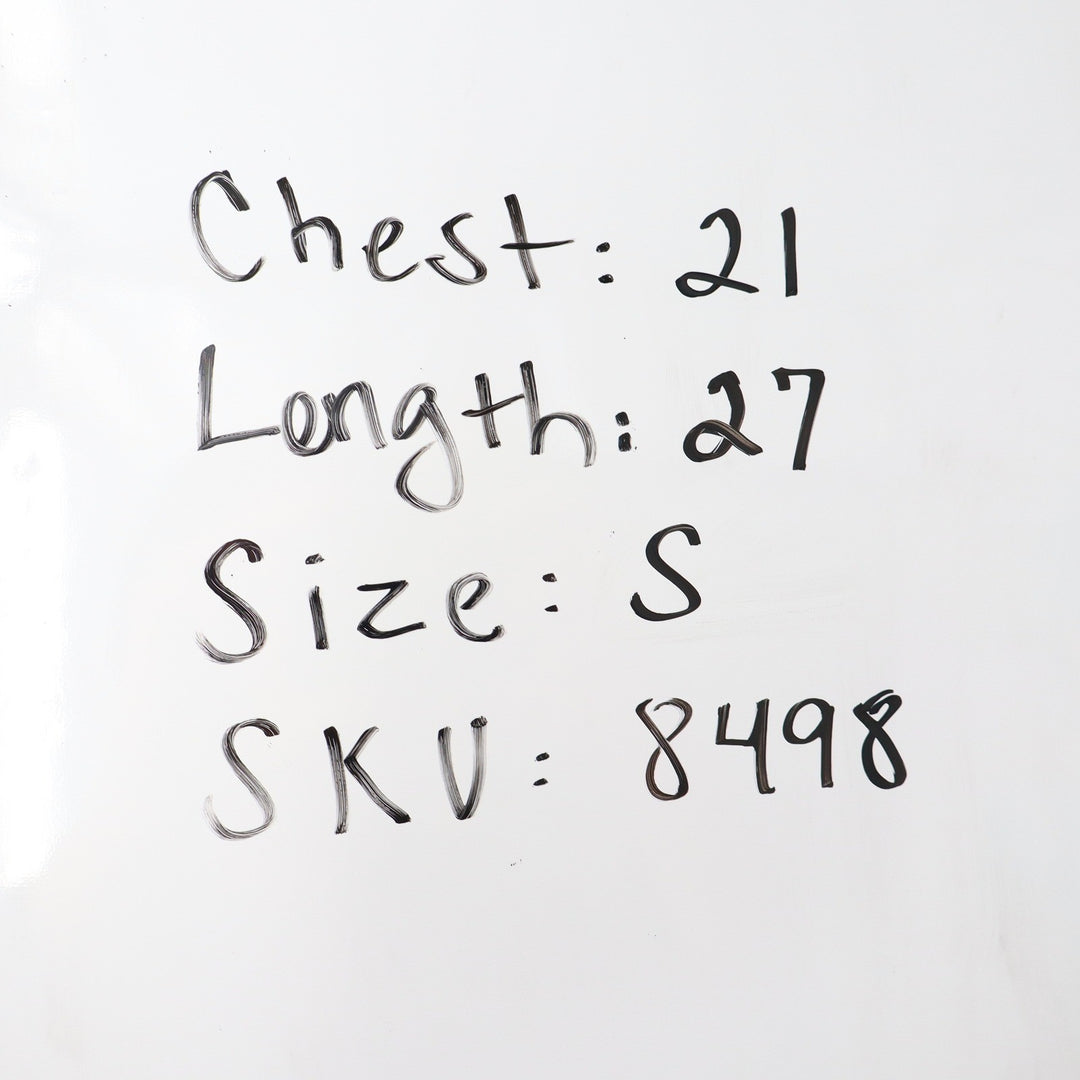 Chest: 21
Longth: 27
Size: S
SKU: 8498